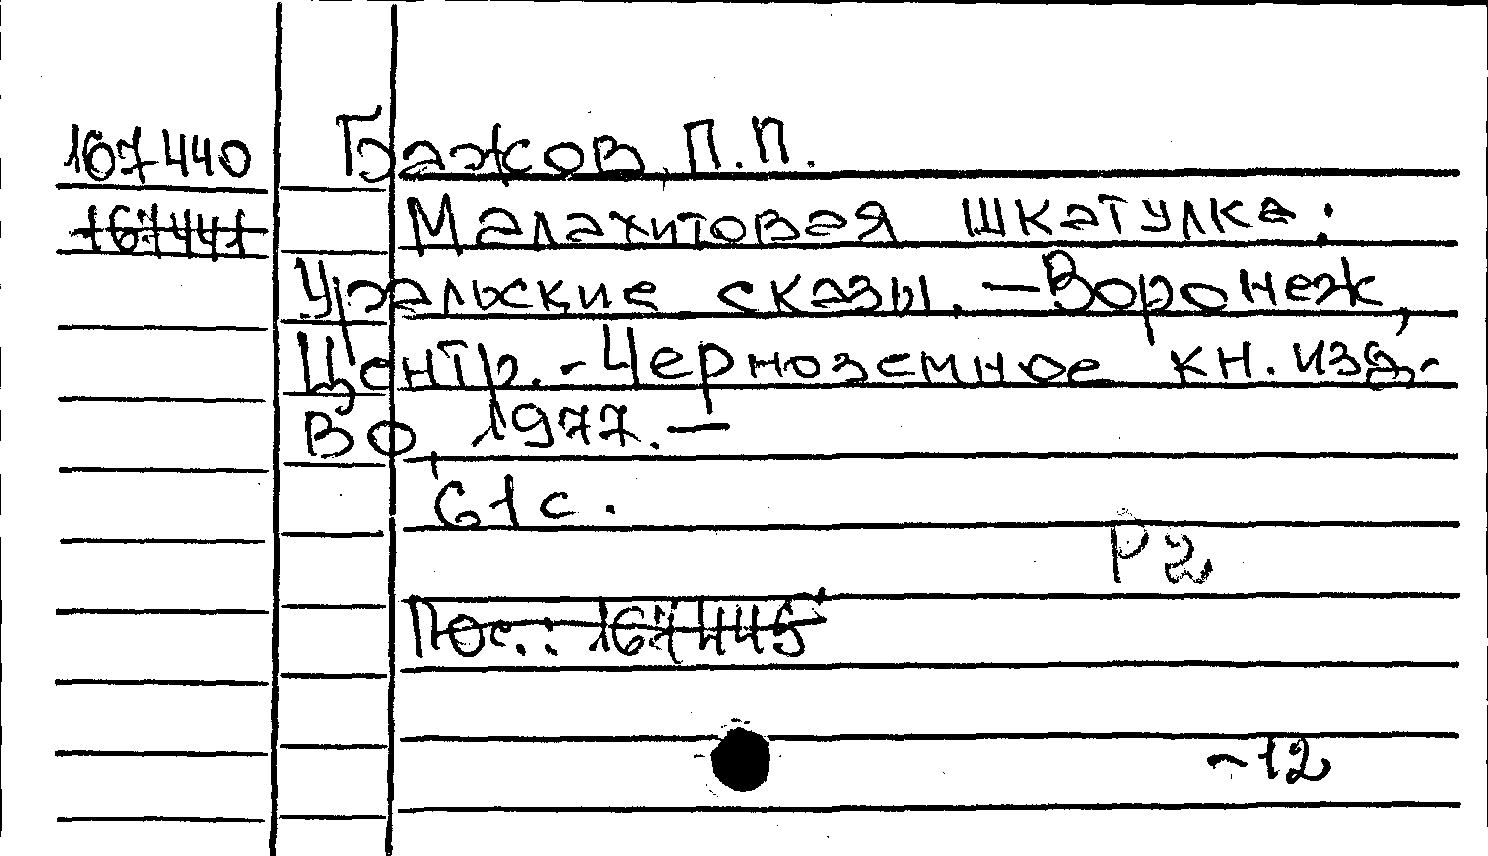 167440 Бажов П.П.
167441 Малахитовая шкатулка:
Уральские сказы. – Воронеж,
Центр.-Черноземное кн. изд-
во, 1977. –
61 с.
Р2
Пос.: 167445
-12